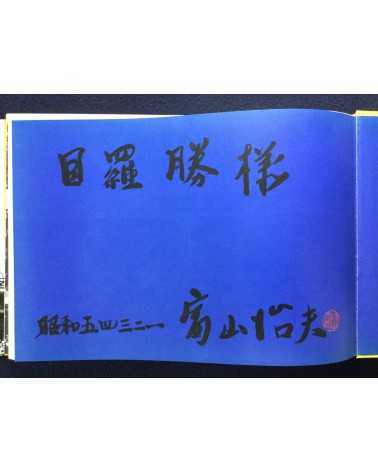 目羅勝様
昭和五四三二一 富山治夫